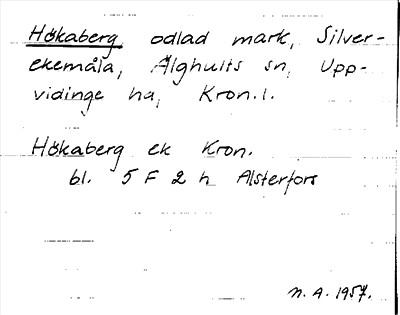 Hökaberg, odlad mark, Silver-
ekemåla, Älghults sn, Upp-
vidinge hd, Kron.l.
Hökaberg ek Kron.
bl. 5 F 2 h Alsterfors
N.A. 1957.